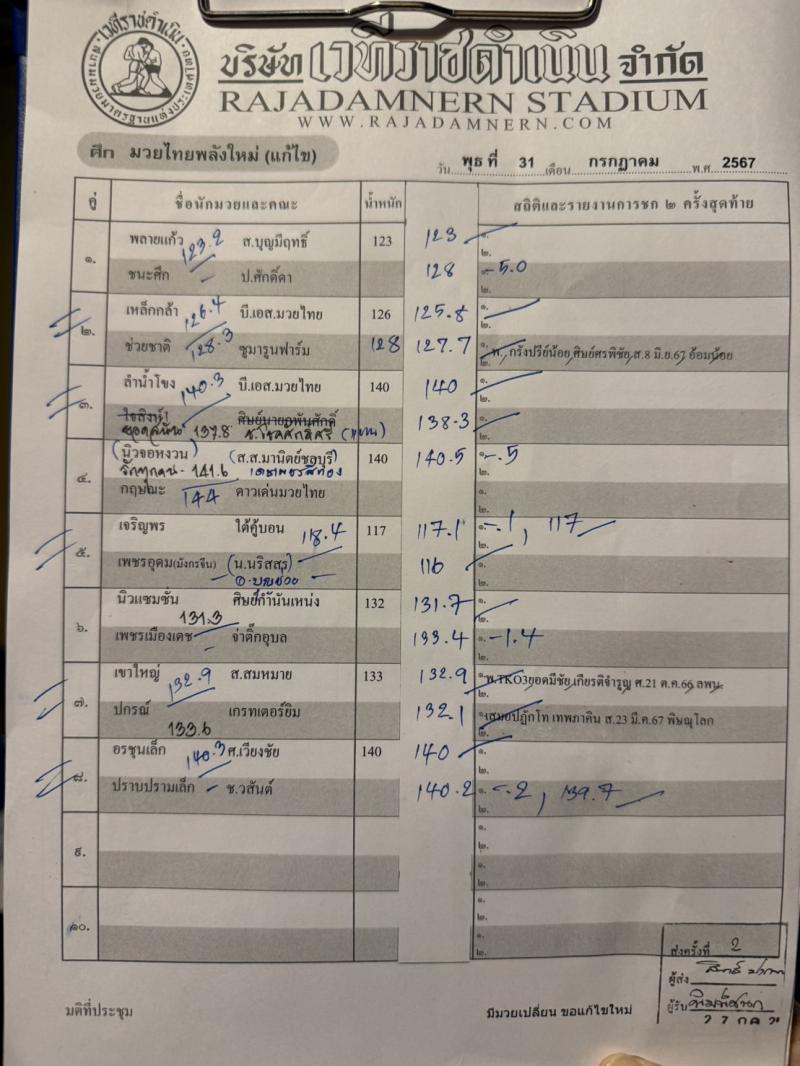 เวทีราชดำเนิน
บริษัท เวทีราชดำเนิน จำกัด
RAJADAMNERN STADIUM
WWW.RAJADAMNERN.COM
ศึก มวยไทยพลังใหม่ (แก้ไข)
วัน พุธ ที่ 31 เดือน กรกฎาคม พ.ศ 2567
คู่ ชื่อนักมวยและคณะ น้ำหนัก สถิติและรายงานการชก ๒ ครั้งสุดท้าย
๑. พลายแก้ว 123.2 ส.บุญมีฤทธิ์ 123 123 ๑.
๒.
ชนะศึก ป.ศักดิ์ดา 128 ๑. -5.0
๒.
๒. เหล็กกล้า 126.4 บี.เอส.มวยไทย 126 125.8 ๑.
๒.
ช่วยชาติ 128.3 ซูมารูนฟาร์ม 128 127.7 ๑. พ. กรังปรีย์น้อย ศิษย์ศรพิชัย ส.8 มิ.ย.67 อ้อมน้อย
๒.
๓. ลำน้ำโขง 140.3 บี.เอส.มวยไทย 140 140 ๑.
๒.
137.8 138.3 ๑.
๒.
๔. (นิวจอหงวน) (ส.ส.มานิตย์ชลบุรี) 140 140.5 ๑. -.5
141.6 ๒.
กฤษณะ 144 ดาวเด่นมวยไทย ๑.
๒.
๕. เจริญพร ใต้คู้บอน 118.4 117 117.1 ๑. -.1, 117
๒.
เพชรอุดม(มังกรจีน) (น.นริสสร) 116 ๑.
๒.
๖. นิวแซมซั่น ศิษย์กำนันเหน่ง 132 131.7 ๑.
131.3 ๒.
เพชรเมืองเดช จ่าติ๊กอุบล 133.4 ๑. -1.4
๒.
๗. เขาใหญ่ 132.9 ส.สมหมาย 133 132.9 ๑. พ.TKO3ยอดมีชัย เกียรติจำรูญ ศ.21 ต.ค.66 ลพน.
๒.
ปกรณ์ เกรทเตอร์ยิม 132.1 ๑. เสมอปฏักโท เทพภาคิน ส.23 มี.ค.67 พิษณุโลก
133.6 ๒.
๘. อรชุนเล็ก 140.3 ศ.เวียงชัย 140 140 ๑.
๒.
ปราบปรามเล็ก ช.วสันต์ 140.2 ๑. -.2, 139.7
๒.
๙. ๑.
๒.
๑.
๒.
๑๐. ๑.
๒.
๑.
๒.
ส่งครั้งที่ 2
ผู้ส่ง
ผู้รับ
มติที่ประชุม มีมวยเปลี่ยน ขอแก้ไขใหม่